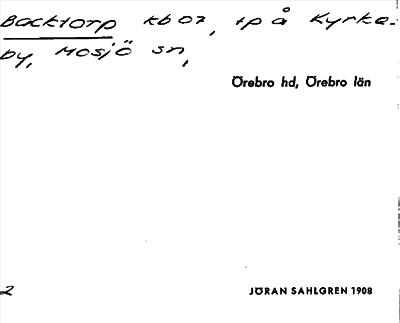 Backtorp kb 07, tp å Kyrka-
by, Mosjö sn,
Örebro hd, Örebro län
2
JÖRAN SAHLGREN 1908